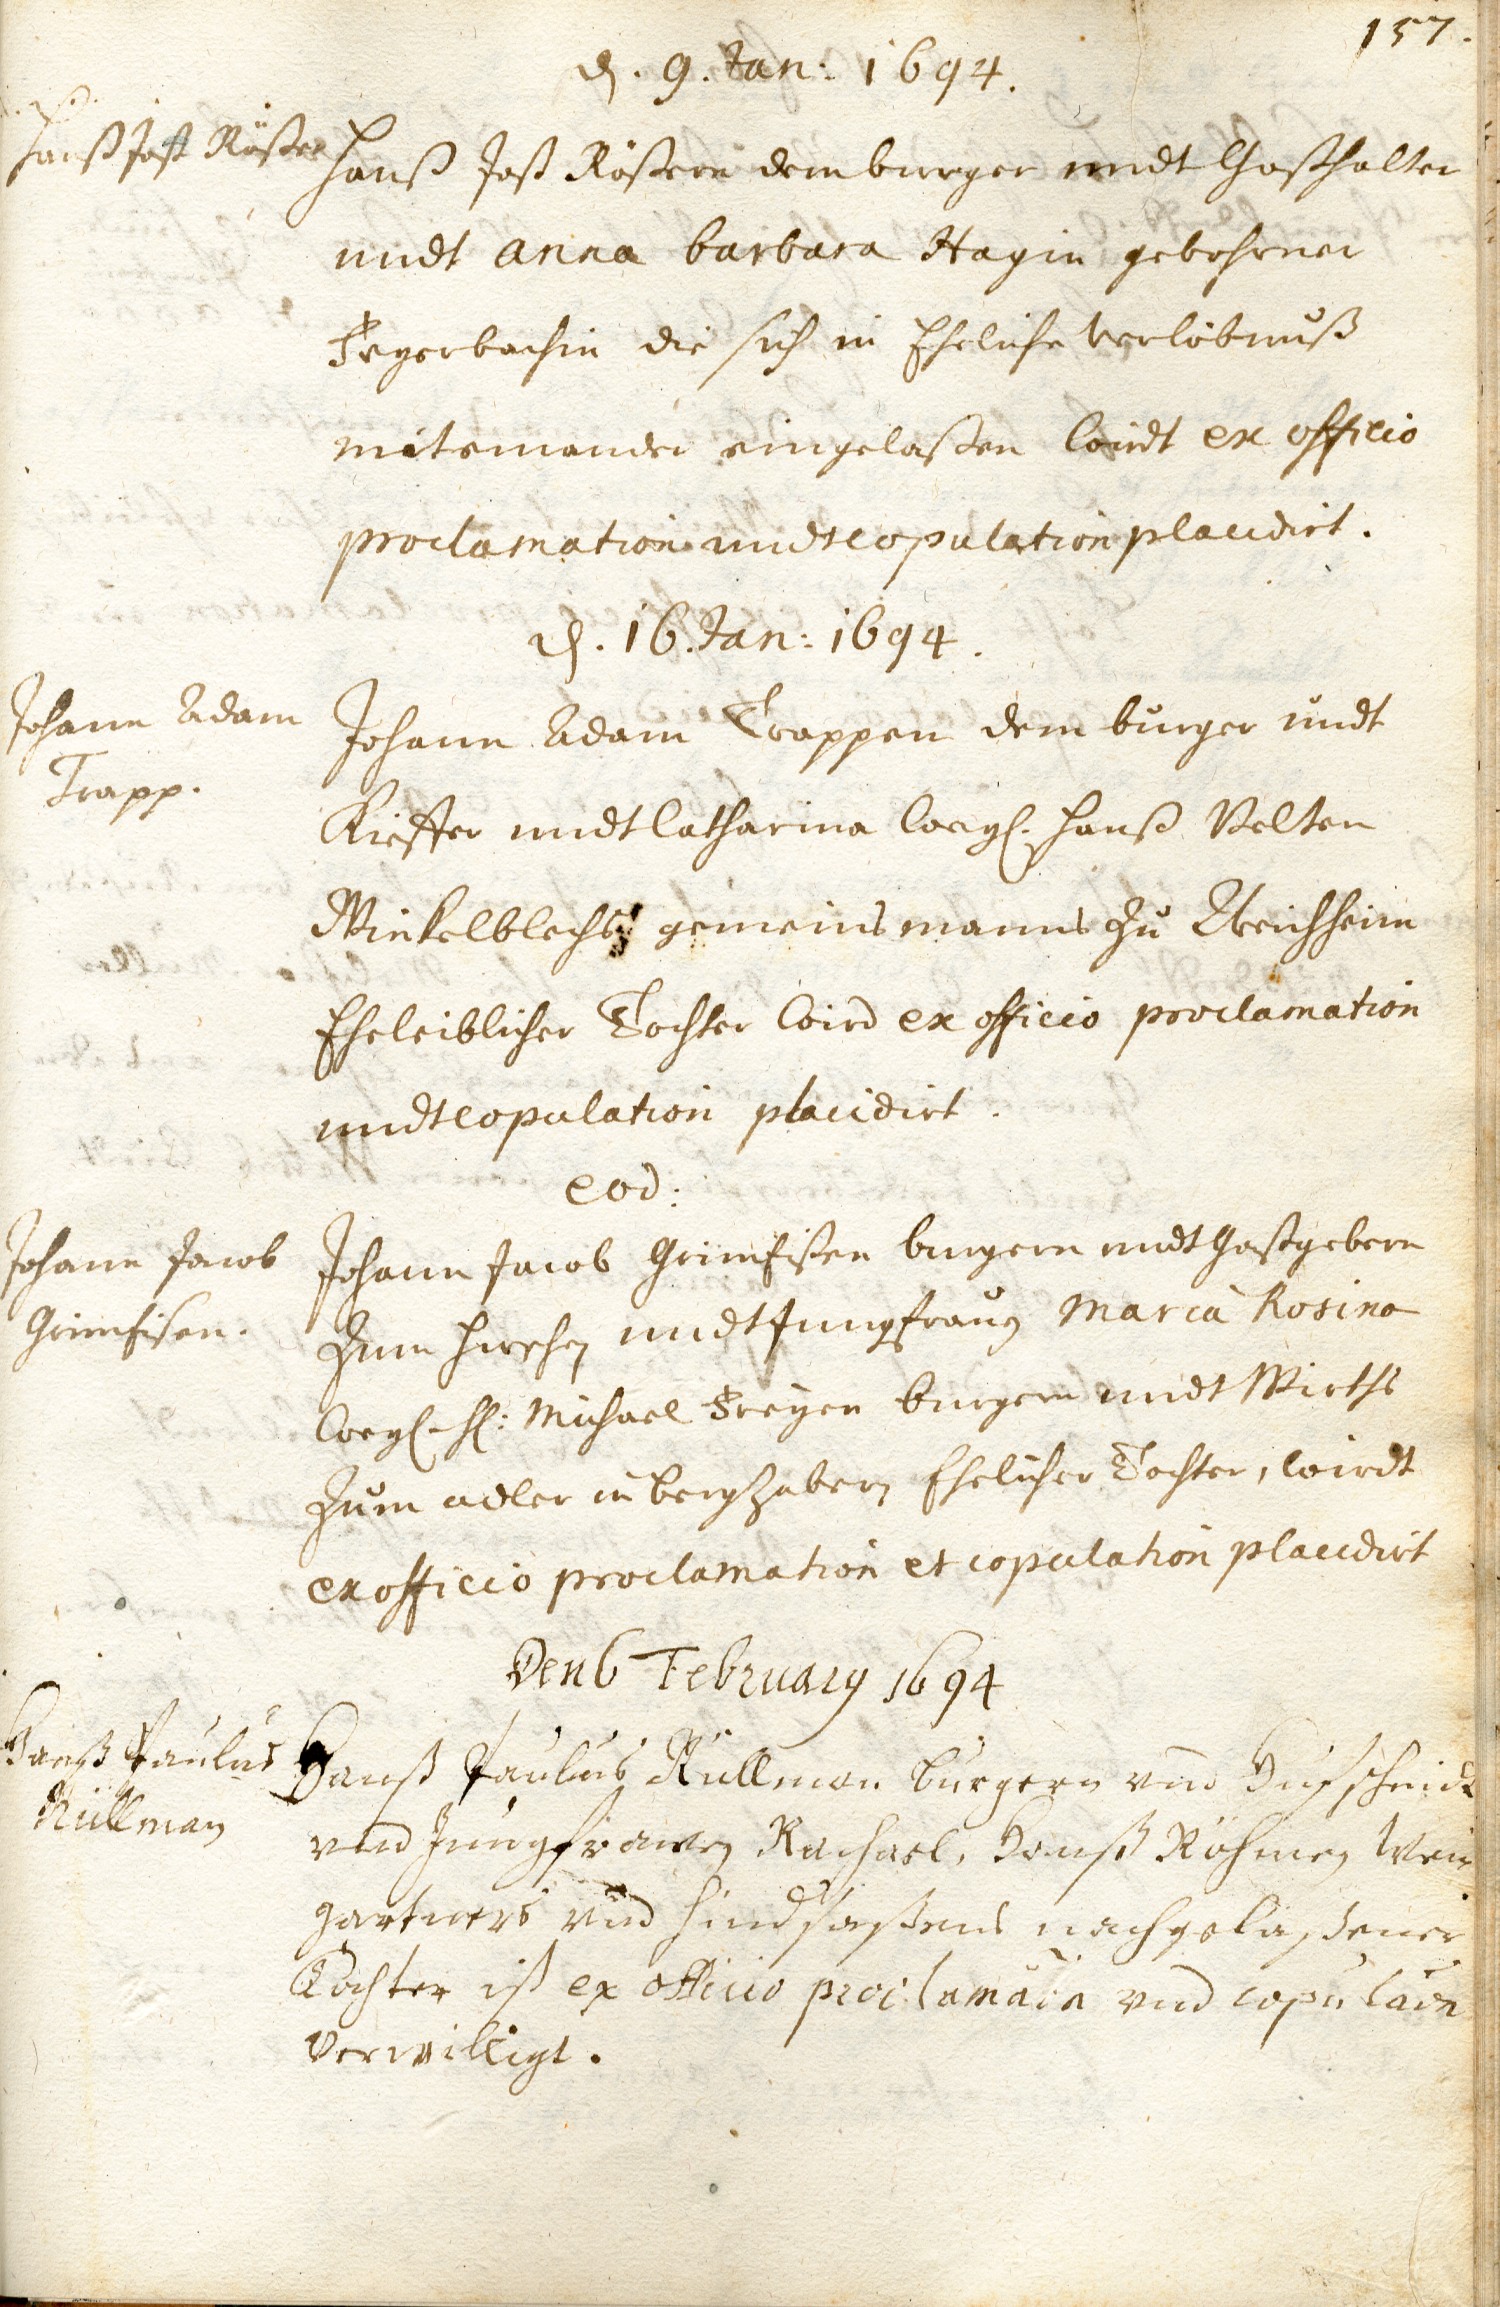 157.
d. 9. Jan: 1694.
Hanß Jost Rößer
Hanß Jost Rößern dem burger undt Gasthalter
undt Anna barbara Hagin gebohrner
Feyerbachin die sich in Eheliche verlöbnuß
miteinander eingelaßen wirdt ex officio
proclamation undt copulation placidirt.
d. 16. Jan: 1694.
Johann Adam
Trapp.
Johann Adam Trappen dem burger undt
Kieffer undt Catharina weyl. Hanß Velten
Winkelblechs gemeinsmanns zu Weichheim
Eheleiblicher Tochter wird ex officio proclamation
undt copulation placidirt.
eod:
Johann Jacob
Grimeisen.
Johann Jacob Grimeisen burgern undt Gastgebern
Zum Hirschen undt Jungfrauen Maria Rosina
weyl. H: Michael Freyen burgern undt Wirths
Zum adler in bergzabern Ehelicher Tochter, wirdt
ex officio proclamation et copulation placidirt
Den 6 February 1694
Hanß Paulus
Rullman
Hanß Paulus Rullman burgern und Hufschmidt
und Jungfrawen Rachael, Hanß Röhmen Wein
gartners und hindsaßens nachgelaßener
Tochter ist ex officio proclamaon und copulaon
verwilligt.